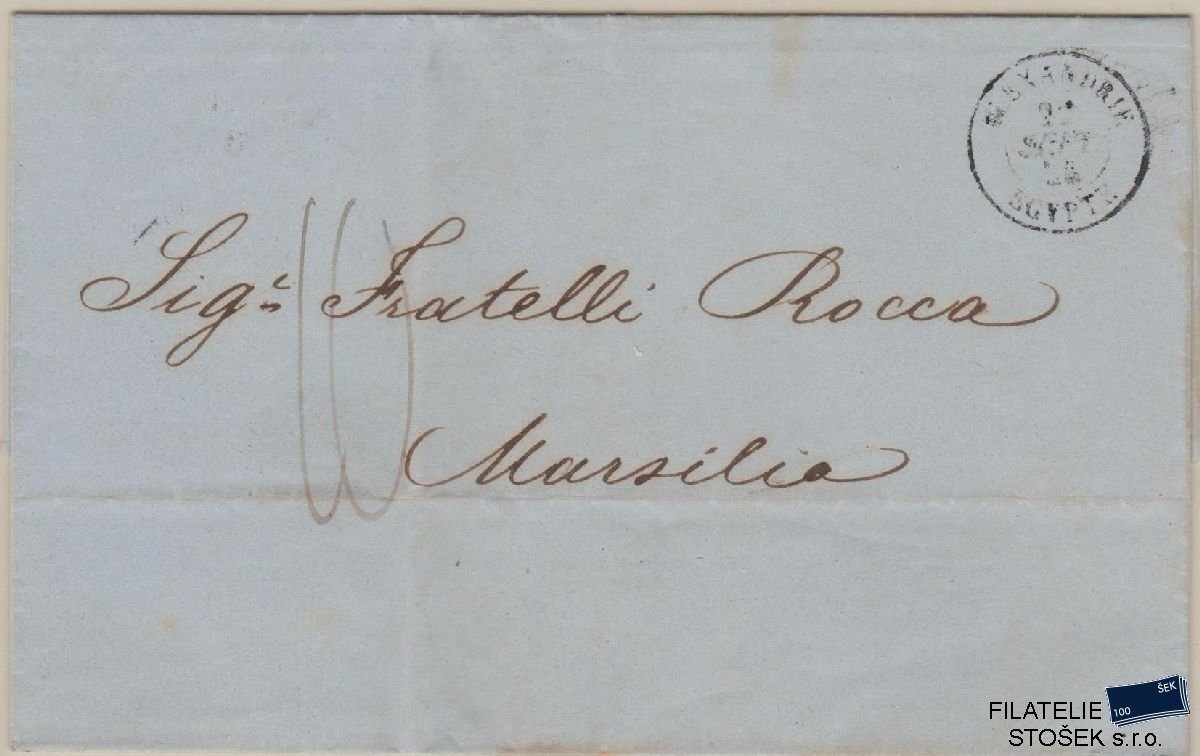 ALEXANDRIE
SEPT
EGYPTE
Sigr. Fratelli Rocca
Marsilia
ŠEK
100
FILATELIE
STOŠEK s.r.o.